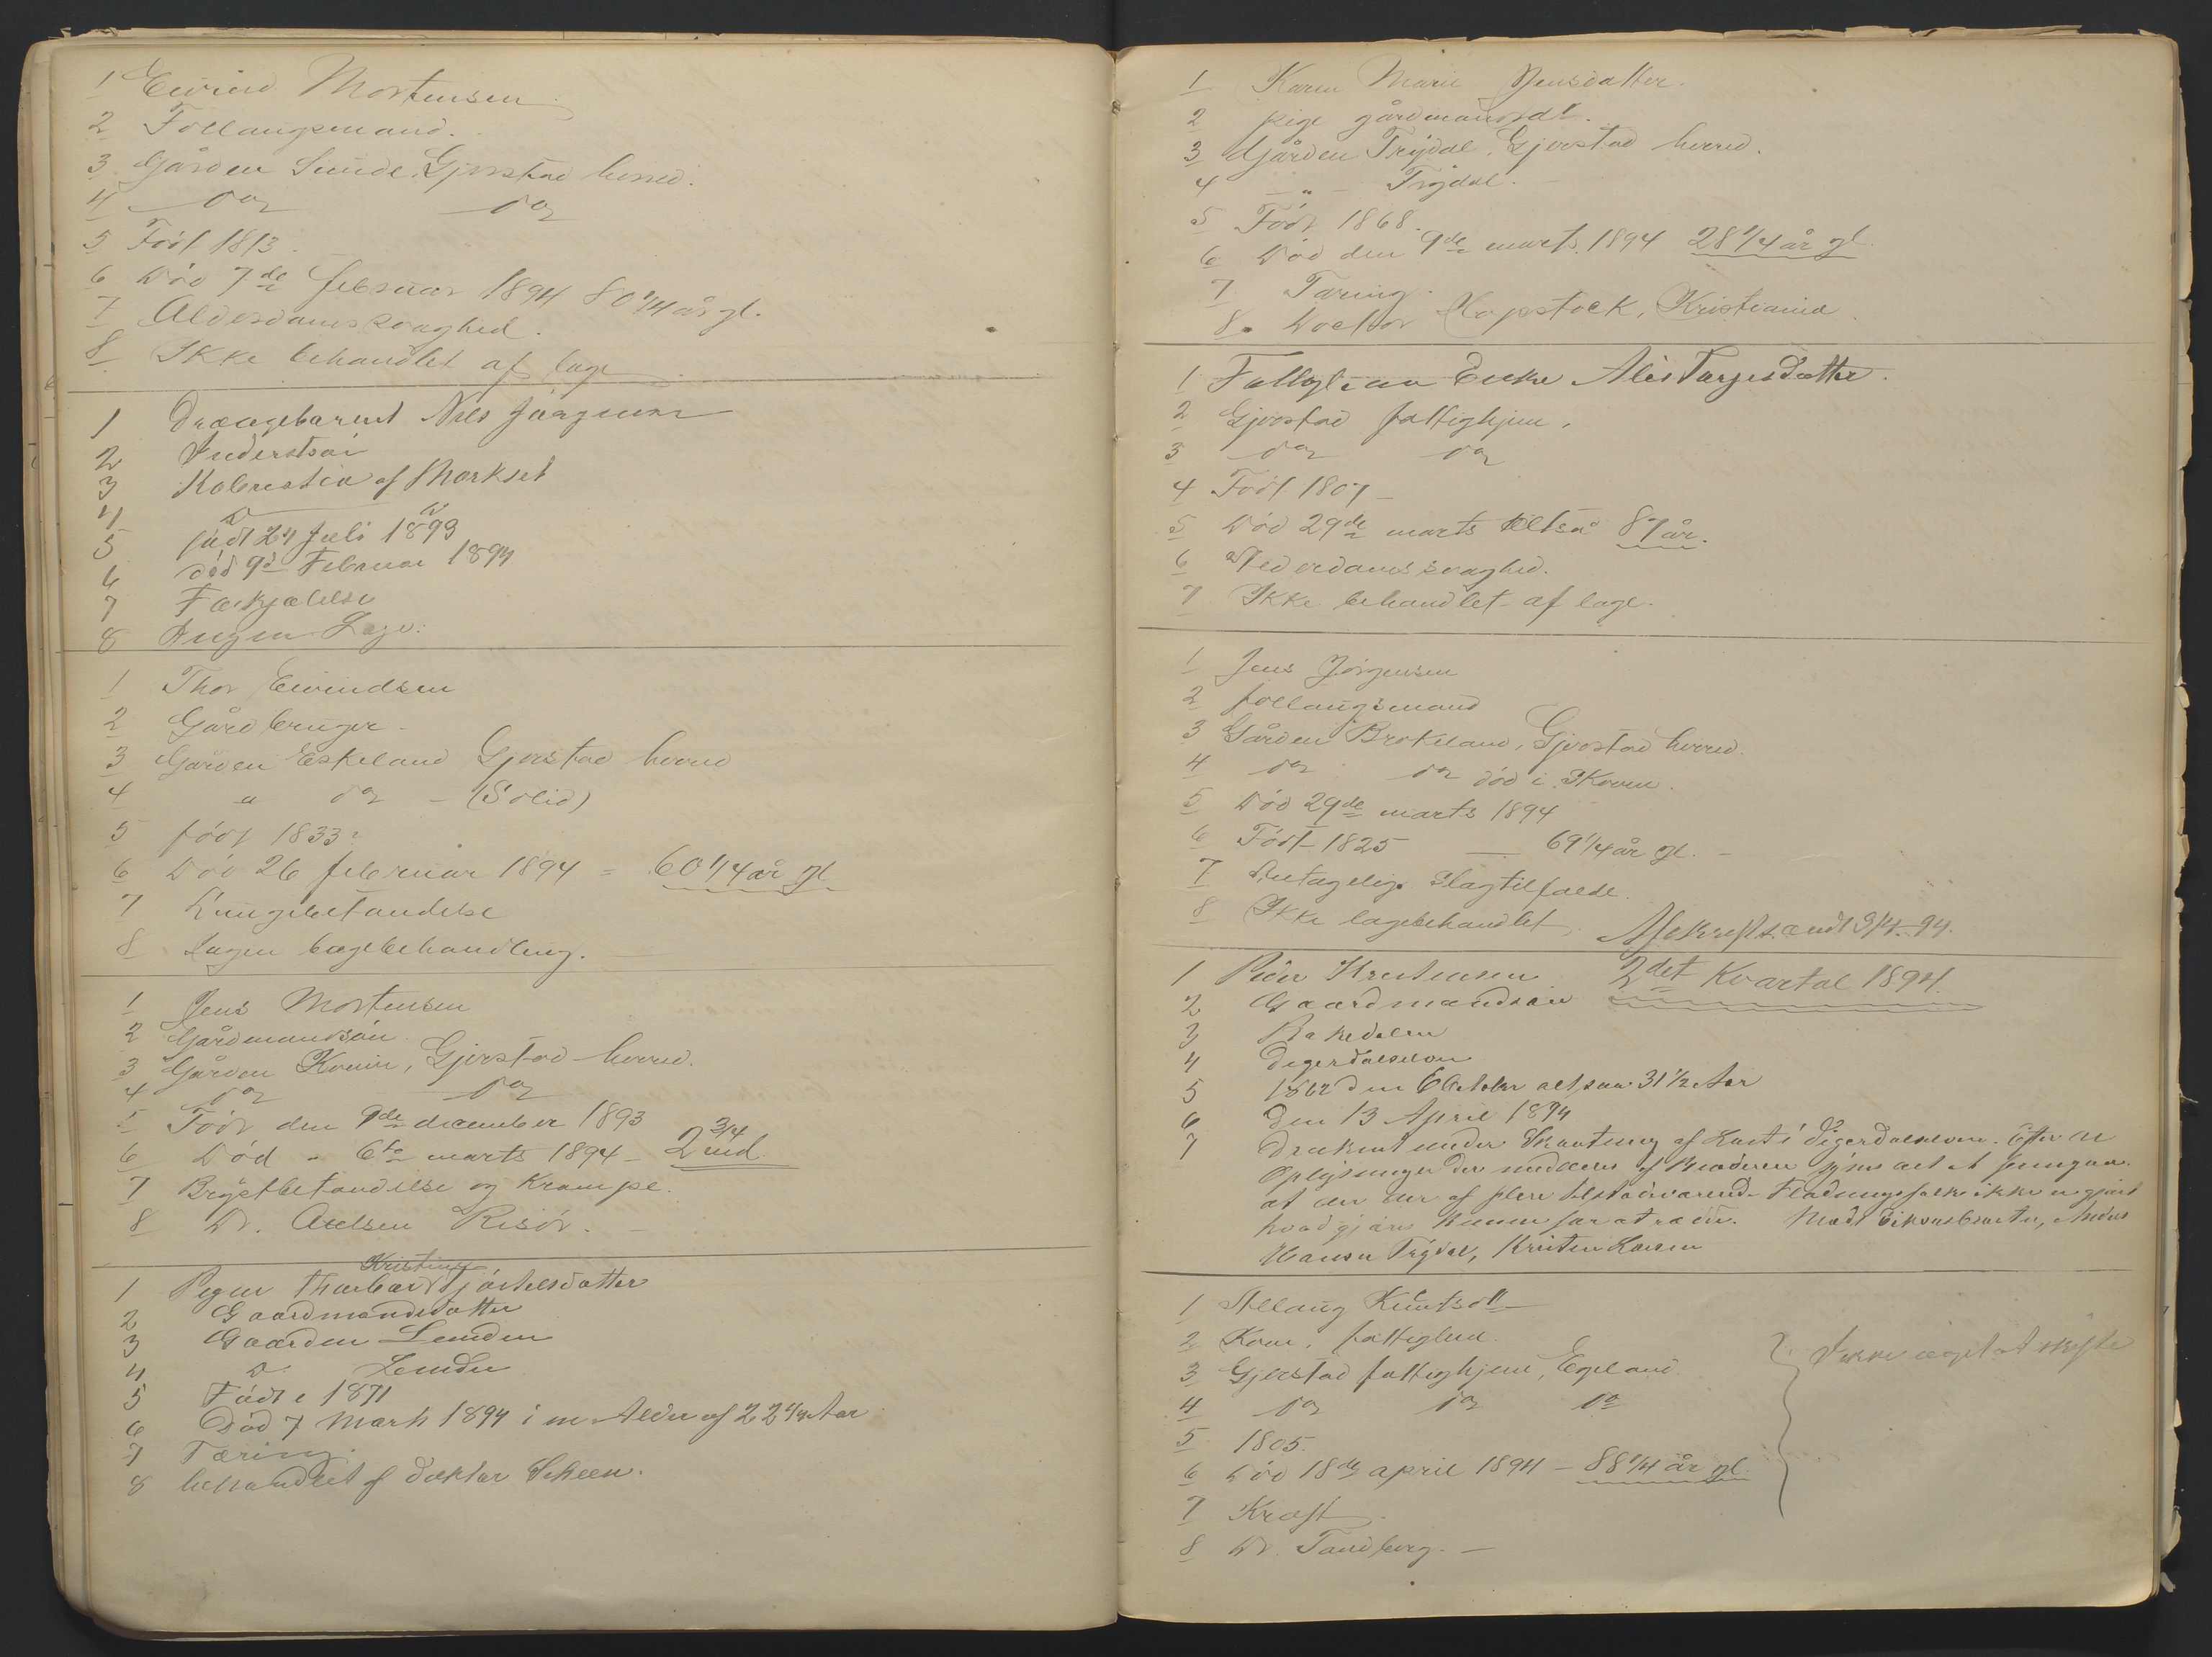 1 Eivind Mortensen
2 Follaugsmand.
3 Gården Sunde, Gjerstad herred.
4 do do
5 Født 1813.
6 Død 7de februar 1894 80 1/4 år gl.
7 Alderdomssvaghed.
8 Ikke behandlet af læge
1 Drængebarent Nils Jørgensen
2 Inderstsøn
3
4 D D
5 født 24 Juli 1893
6 død 9d Februar 1894
7 Forkjølelse
8 Ingen Læge.
1 Thor Eivindsen
2 Gårdbruger
3 Gården Eskeland Gjerstad herred
4 " do - (Solid)
5 født 1833
6 Død 26 februar 1894 = 60 1/4 år gl
7 Lungebetændelse
8 Ingen lægebehandling.
1 Jens Mortensen
2 Gårdmandsøn
3 Gården Gjerstad herred.
4 do do
5 Født den 9de december 1893
6 Død " 6te marts 1894 - 2 3/4 md
7 Brystbetændelse og Krampe.
8 Dr. Axelsen Risør.
Kristine
1 Pigen Thorbor
2 Gaardmandsdatter
3 Gaarden Lunden
4 D Lunden
5 Født i 1871
6 Død 7 Marts 1894 i en Alder af 22 1/4 Aar
7 Tæring.
8 behandlet af Doktor Scheen.
1 Karen Marie Jensdatter.
2 pige gårdmandsdtr.
3 Gården Trydal, Gjerstad herred.
4 - " - Trydal.
5 Født 1868.
6 Død den 9de marts 1894 28 1/4 år gl
7 Tæring.
8. Doctor Hopstock, Kristiania.
1 Enke Alis Targesdatter.
2 Gjerstad fattighjem.
3 do do
4 Født 1807
5 Død 29de marts altså 87 år.
6 Alderdomssvaghed.
7 Ikke behandlet af læge.
1 Jens Jørgensen
2 follaugsmand
3 Gården Brokeland, Gjerstad herred.
4 do do død i Skoven.
5 Død 29de marts 1894
6 Født 1825 69 1/4 år gl.
7 Antagelig slagtilfælde.
8 Ikke lægebehandlet
Afskrift sendt 3/4-94.
2det Kvartal 1894.
1 Peder Kristensen
2 Gaardmandsøn
3
4 Digerdalselven
5 1862 den October altsaa 31 1/2 Aar
6 Den 13 April 1894
7 Druknet under Skantning af Last i Digerdalselven. Efter de
Oplysninger der meddeles af Broderen synes det at fremgaa.
at der der af flere tilstedeværende Flødningsfolk ikke er gjort
hvad gjøres kunne for at redde.
Hansen Trydal, Kristen Larsen
1 Aslaug Knutsdtr
2 Kone, fattiglem.
3 Gjerstad fattighjem, Egeland
4 do do do
5 1805.
6 Død 18de april 1894 - 88 1/4 år gl.
7 Kræft.
8 Dr. Tandberg. -